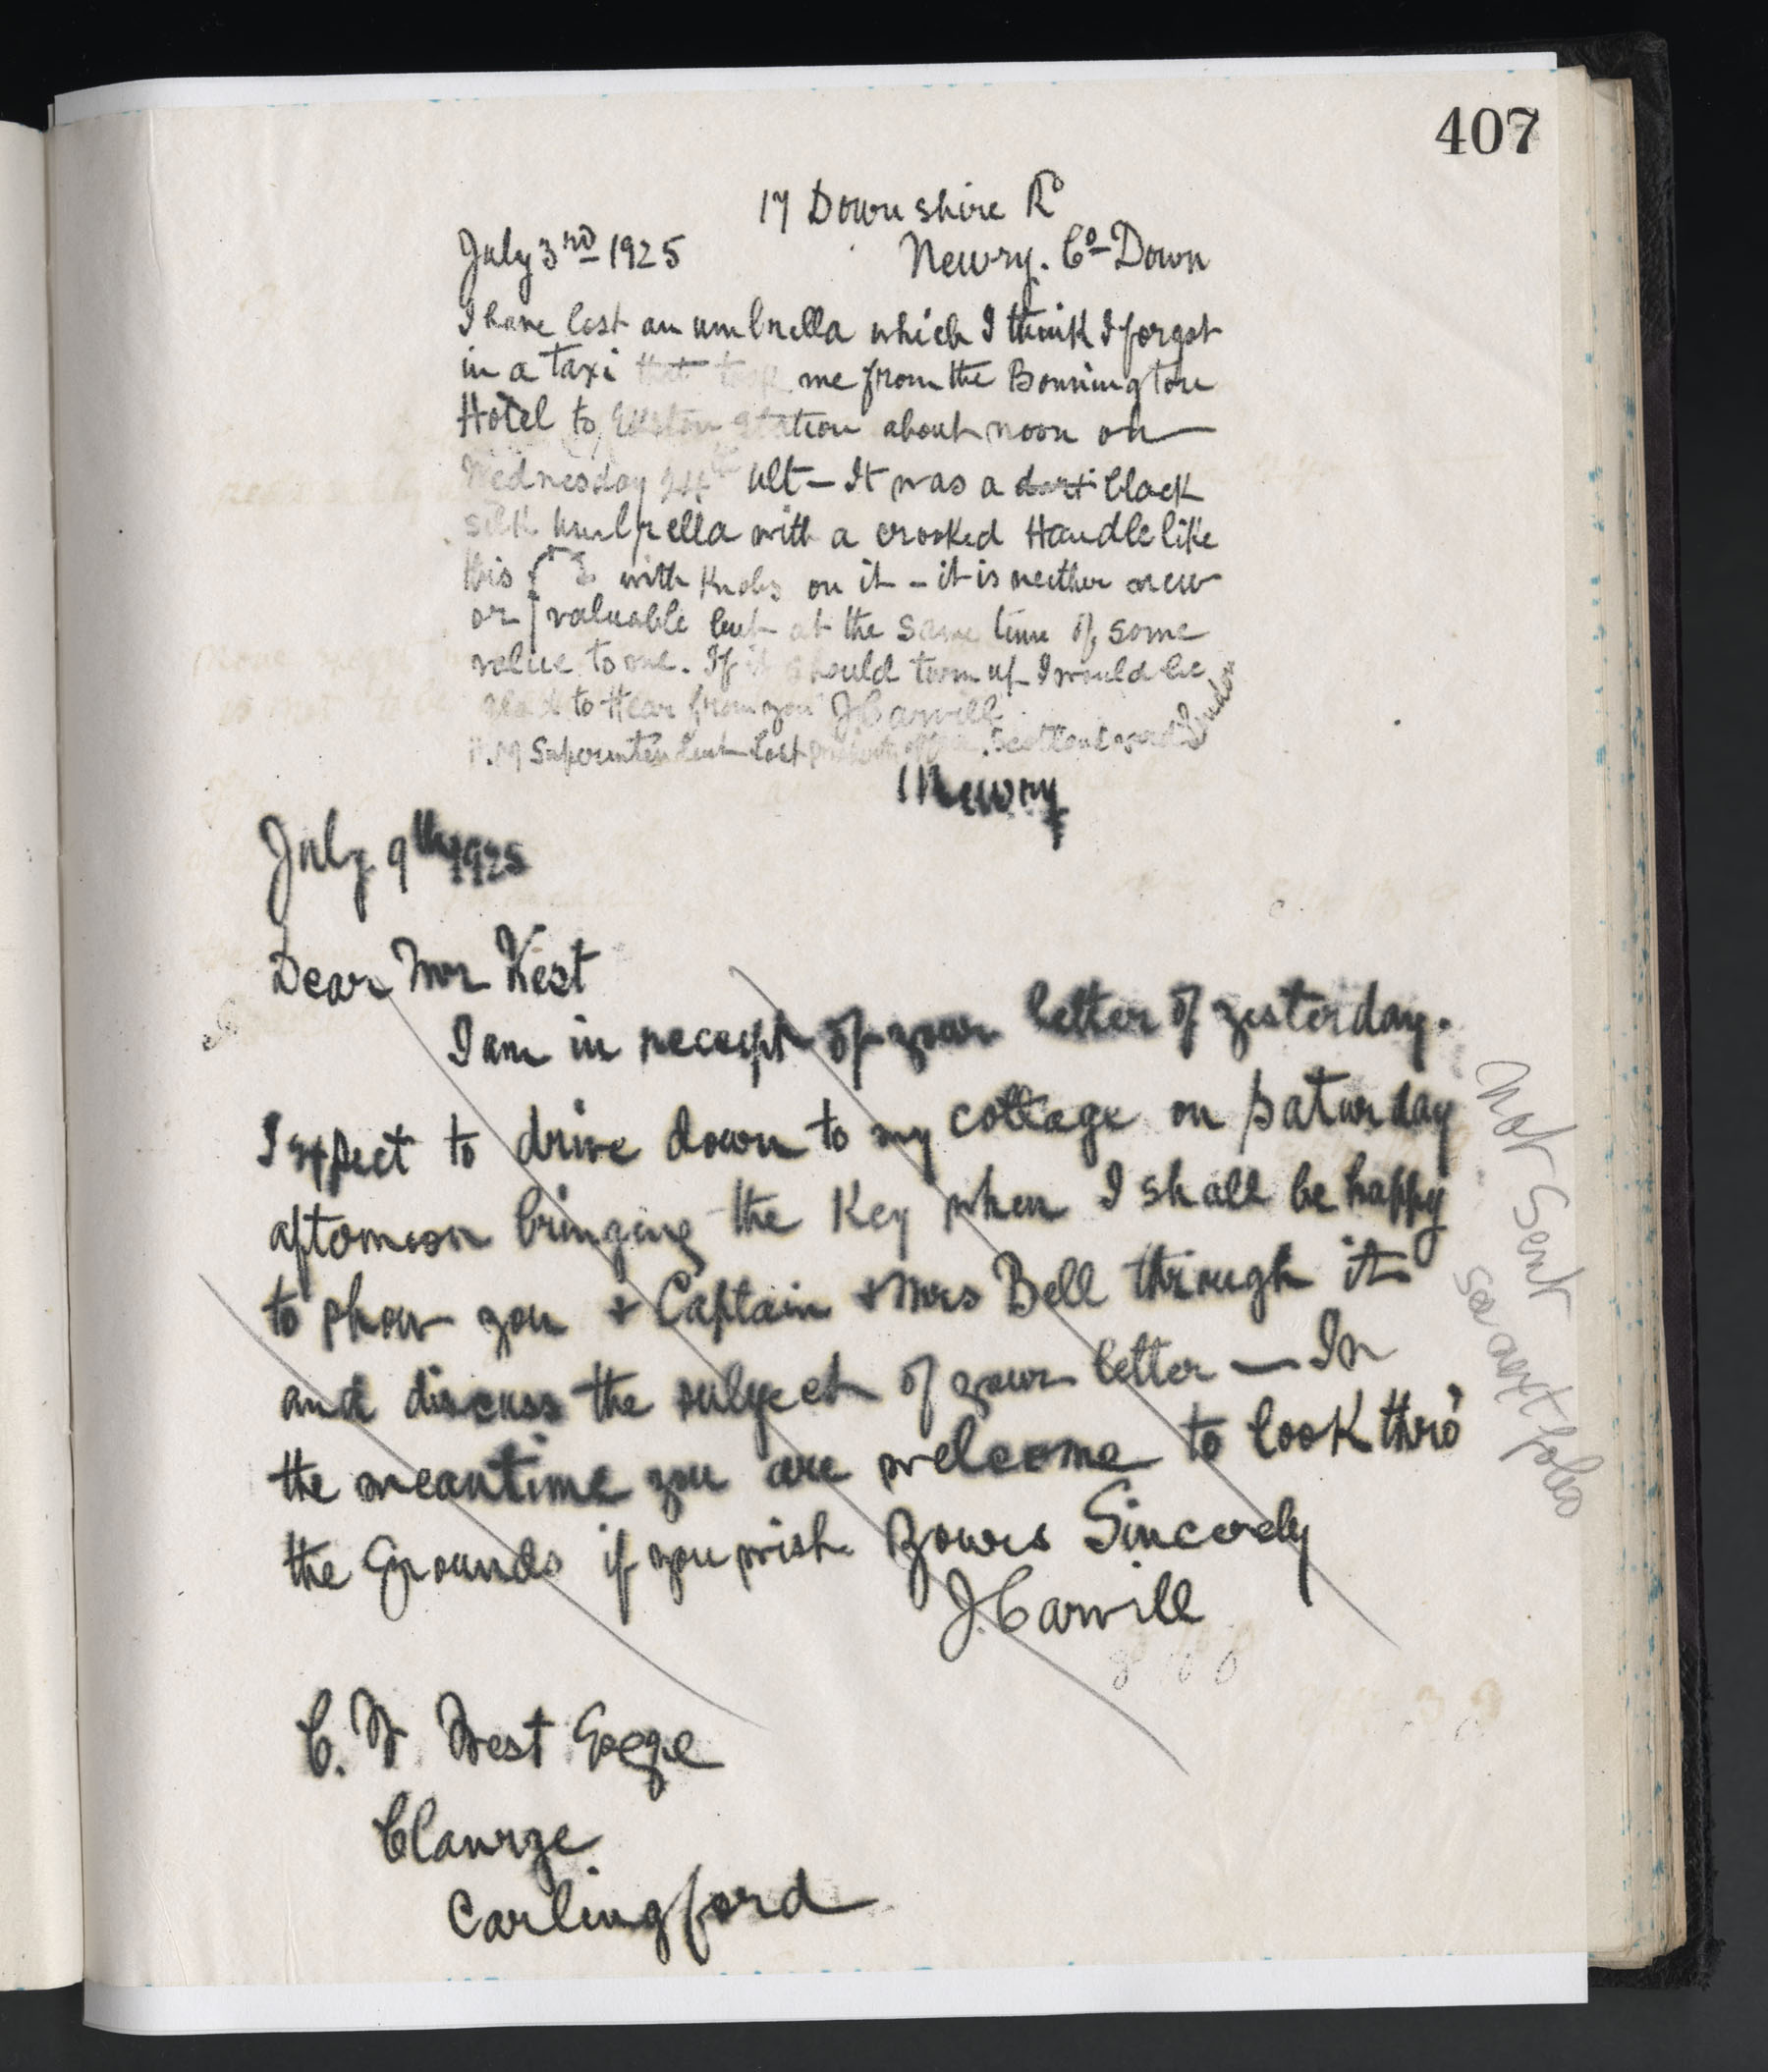 407
17 Downshire Rd
July 3rd 1925 Newry. Co Down
I have lost an umbrella which I think I forgot
in a taxi that took me from the Bonnington
Hotel to Euston Station about noon on
Wednesday 24th ult — It was a dark black
silk umbrella with a crooked Handle like
this with Knobs on it - it is neither new
or valuable but at the same time of some
value to me. If it should turn up I would be
glad to Hear from you J Carvill
Superintendent Lost property office Scotland yard London
Newry
July 9th 1925
Dear Mr West
I am in receipt of your letter of yesterday.
I expect to drive down to my cottage on Saturday
afternoon bringing the Key when I shall be happy
to show you & Captain & Mrs Bell through it
and discuss the subject of your letter — In
the meantime you are welcome to look thro'
the Grounds if you wish Yours Sincerely
J. Carvill
C. W. West Esqre
Carlingford
Not Sent
see next folio